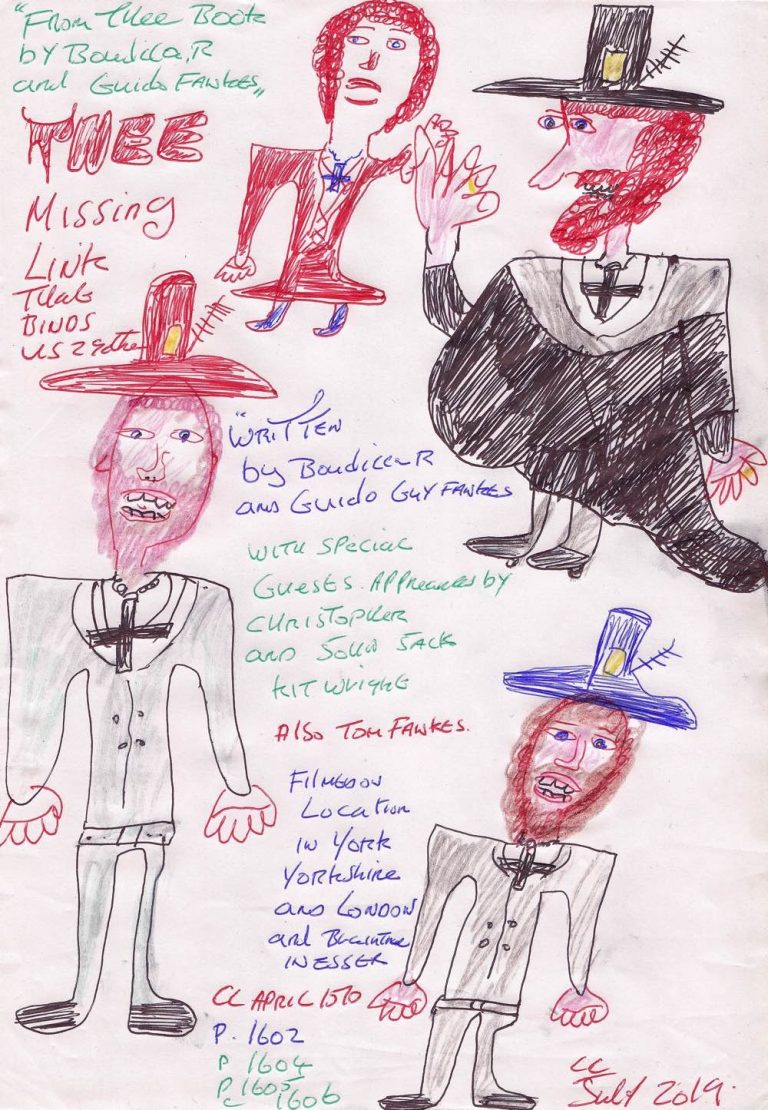 "From Thee Book
by Boudica,R
and Guido Fawkes,,
THEE
Missing
Link
That
BINDS
US 2gether
"WRITTEN
by Boudicca R
and Guido Guy Fawkes
With Special
Guests. Appreared by
Christopher
and John Jack
Kit Wright
Also Tom Fawkes.
Filmed on
Location
in York
Yorkshire
and London
and Braintree
IN ESSEX
CC APRIL 1570
P. 1602
P 1604
P 1605
C 1606
CC
July 2019.